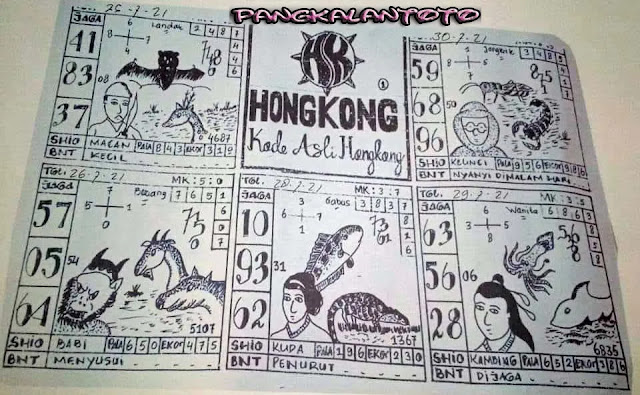 PANGKALANTOTO
25-7-21
JAGA
41
83
37
6
4 1
8
08
Landak
2 4 8
4687
SHIO MACAN PALA 8 4 3 EKOR 5 1 9
BNT KECIL
HK
HONGKONG
Kode Asli Hongkong
30-7-21
JAGA
59
68
96
50
Jangkrik
3 4 8 5
SHIO KELINCI PALA 9 5 6 EKOR 9 8 6
BNT NYANYI DIMALAM HARI
TGL. 26-7-21 MK : 5 : 0
JAGA
57
05
64
54
Badang
7 6 5 1
5107
SHIO BABI PALA 6 5 0 EKOR 4 7 5
BNT MENYUSUI
TGL. 28-7-21 MK : 3 : 7
JAGA
10
93
62
31
Gabus
3 8 3 7
1367
SHIO KUDA PALA 1 9 6 EKOR 2 3 0
BNT PENURUT
TGL. 29-7-21 MK : 3 : 5
JAGA
63
56
28
06
Wanita
6 8 6 3
6835
SHIO KAMBING PALA 6 5 2 EKOR 3 8 6
BNT DIJAGA